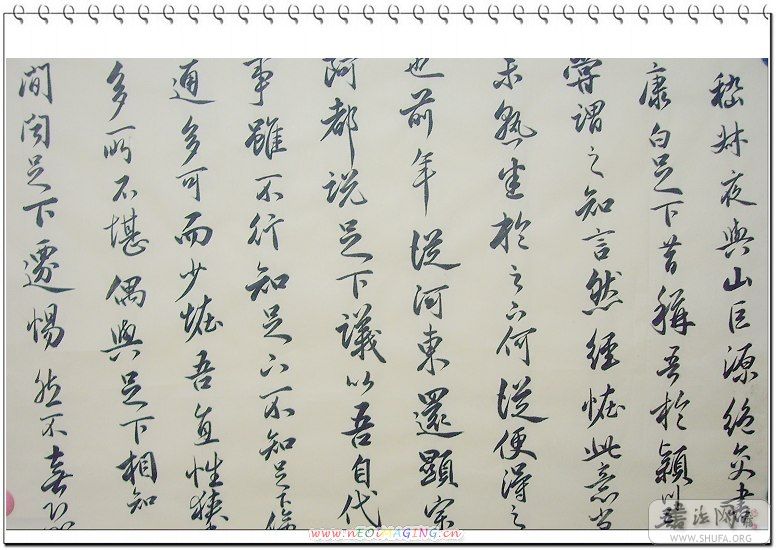 嵇叔夜與山巨源絕交書
康白足下昔稱吾於潁川
嘗謂之知言然經怪此意尚
未熟悉於足下何從便得之
也前年從河東還顯宗
阿都說足下議以吾自代
事雖不行知足下不知足下傍
通多可而少怪吾直性狹
多所不堪偶與足下相知
間聞足下遷惕然不喜恐
书法网
WWW.SHUFA.ORG
www.nEOIMAGING.cn